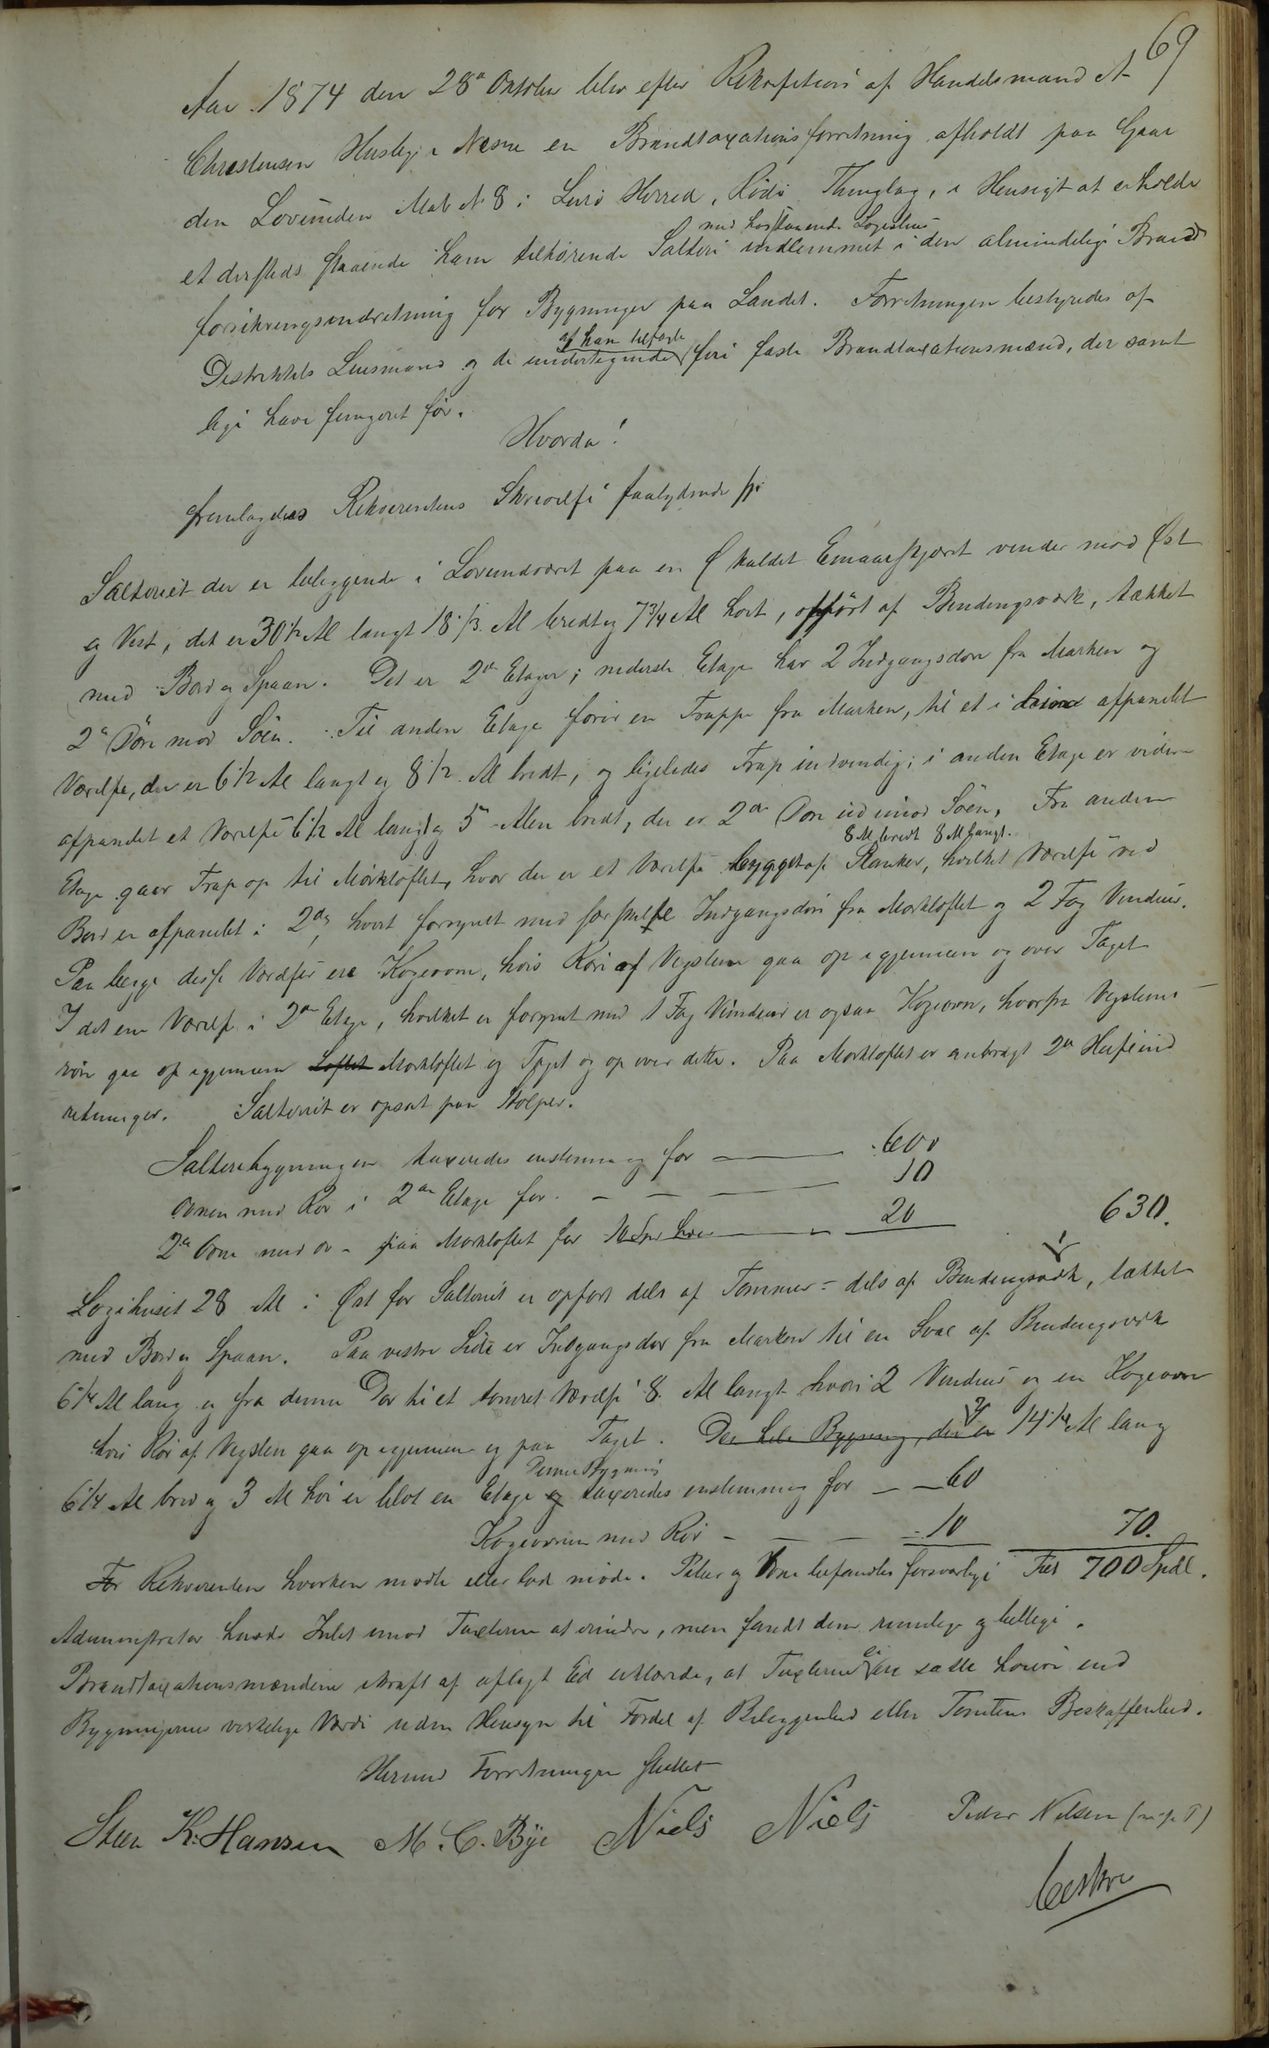 69
Aar 1874 den 28de Oktober blev efter Rekvisition af Handelsmand A
Christensen Husby i Nesne en Brandtaxationsforretning afholdt paa Gaar
den Lovunden Mat N 8 i Lurö Herred, Rödö Thinglag, i Hensigt at erholde
med hosstaaende Logihus
et dersteds staaende ham tilhörende Salteri indlemmet i den almindelige Brand
forsikringsindretning for Bygninger paa Landet. Forretningen bestyredes af
af ham tilsagte
Distriktets Lensmand og de undertegnede fire faste Brandtaxationsmænd, der samt
lige have fungeret för.
Hvorda!
fremlagdes Rekvirentens Skrivelse saalydende
Salteriet der er beliggende i Lovundværet paa en Ø kaldet vender mod Øst
og Vest, det er 30 1/2 Al langt 18 1/3 Al bredt og 7 3/4 Al höit, opfört af Bindingsværk, tækket
med Bord og Spaan. Det er 2de Etager; nederste Etage har 2 Indgangsdöre fra Marken og
2de Döre mod Söen. Til anden Etage förer en Trappe fra Marken, til et i afpanelet
Værelse, der er 6 1/2 Al langt og 8 1/2 Al bredt, og ligeledes Trap indvendig; i anden Etage er videre
afpanelet et Værelse 6 1/2 Al langt og 5 Alen bredt, der er 2de Döre ud imod Söen. Fra anden
8 Al bredt 8 Al langt.
Etage gaar Trap op til Mörkloftet, hvor der er et Værelse bygget af Planker, hvilket Værelse ved
Bord er afpanelet i 2de, hvert forsynet med særskilte Indgangsdöre fra Mörkloftet og 2 Fag Vinduer.
Paa begge disse Værelser ere Kogeovne, hvis Rör af Vegsten gaa op igjennem og over Taget
I det ene Værelse i 2den Etage, hvilket er forsynet med 1 Fag Vinduer er ogsaa Kogeovn, hvorfra Vegstens
rör gaa op igjennem Loftet Mörkloftet og Taget og op over dette. Paa Mörkloftet er anbragt 2de Heiseind
retninger. Salteriet er opsat paa Stolper.
Salteribygningen taxeredes enstemmig for — 600
Ovnen med Rör i 2den Etage for - - — 10
2de Ovne med do - paa Mörkloftet for — 20 630.
Logihuset 28 Al i Öst for Salteriet er opfört dels af Tömmer - dels af Bindingsværk, tækket
med Bord og Spaan. Paa vestre Side er Indgangsdör fra Marken til en Sval af Bindingsværk
6 1/4 Al lang og fra denne Dör til et tömret Værelse 8 Al langt hvori 2 Vinduer og en Kogeovn
hvis Rör af Vegsten gaa op igjennem og paa Taget. Den hele Bygning, der er 14 1/4 Al lang
Denne Bygning
6 1/4 Al bred og 3 Al höi er blot en Etage og taxeredes enstemmig for — — 60
Kogeovnen med Rör - — — - 10 70.
For Rekvirenten hverken mödte eller lod möde. Piber og Ovne befandtes forsvarlige Tils 700 Spdl.
Administrator havde Intet imod Taxterne at erindre, men fandt dem rimelige og billige.
ei
Brandtaxationsmændene i kraft af aflagt Ed erklærede, at Taxterne ere satte höiere end
Bygningernes virkelige Værdi uden Hensyn til Fordel af Beliggenhed eller Tomtens Beskaffenhed.
Hermed Forretningen sluttet
Steen K. Hansen M. C. Bye Niels Niels Peder Nilsen (m. p. P)